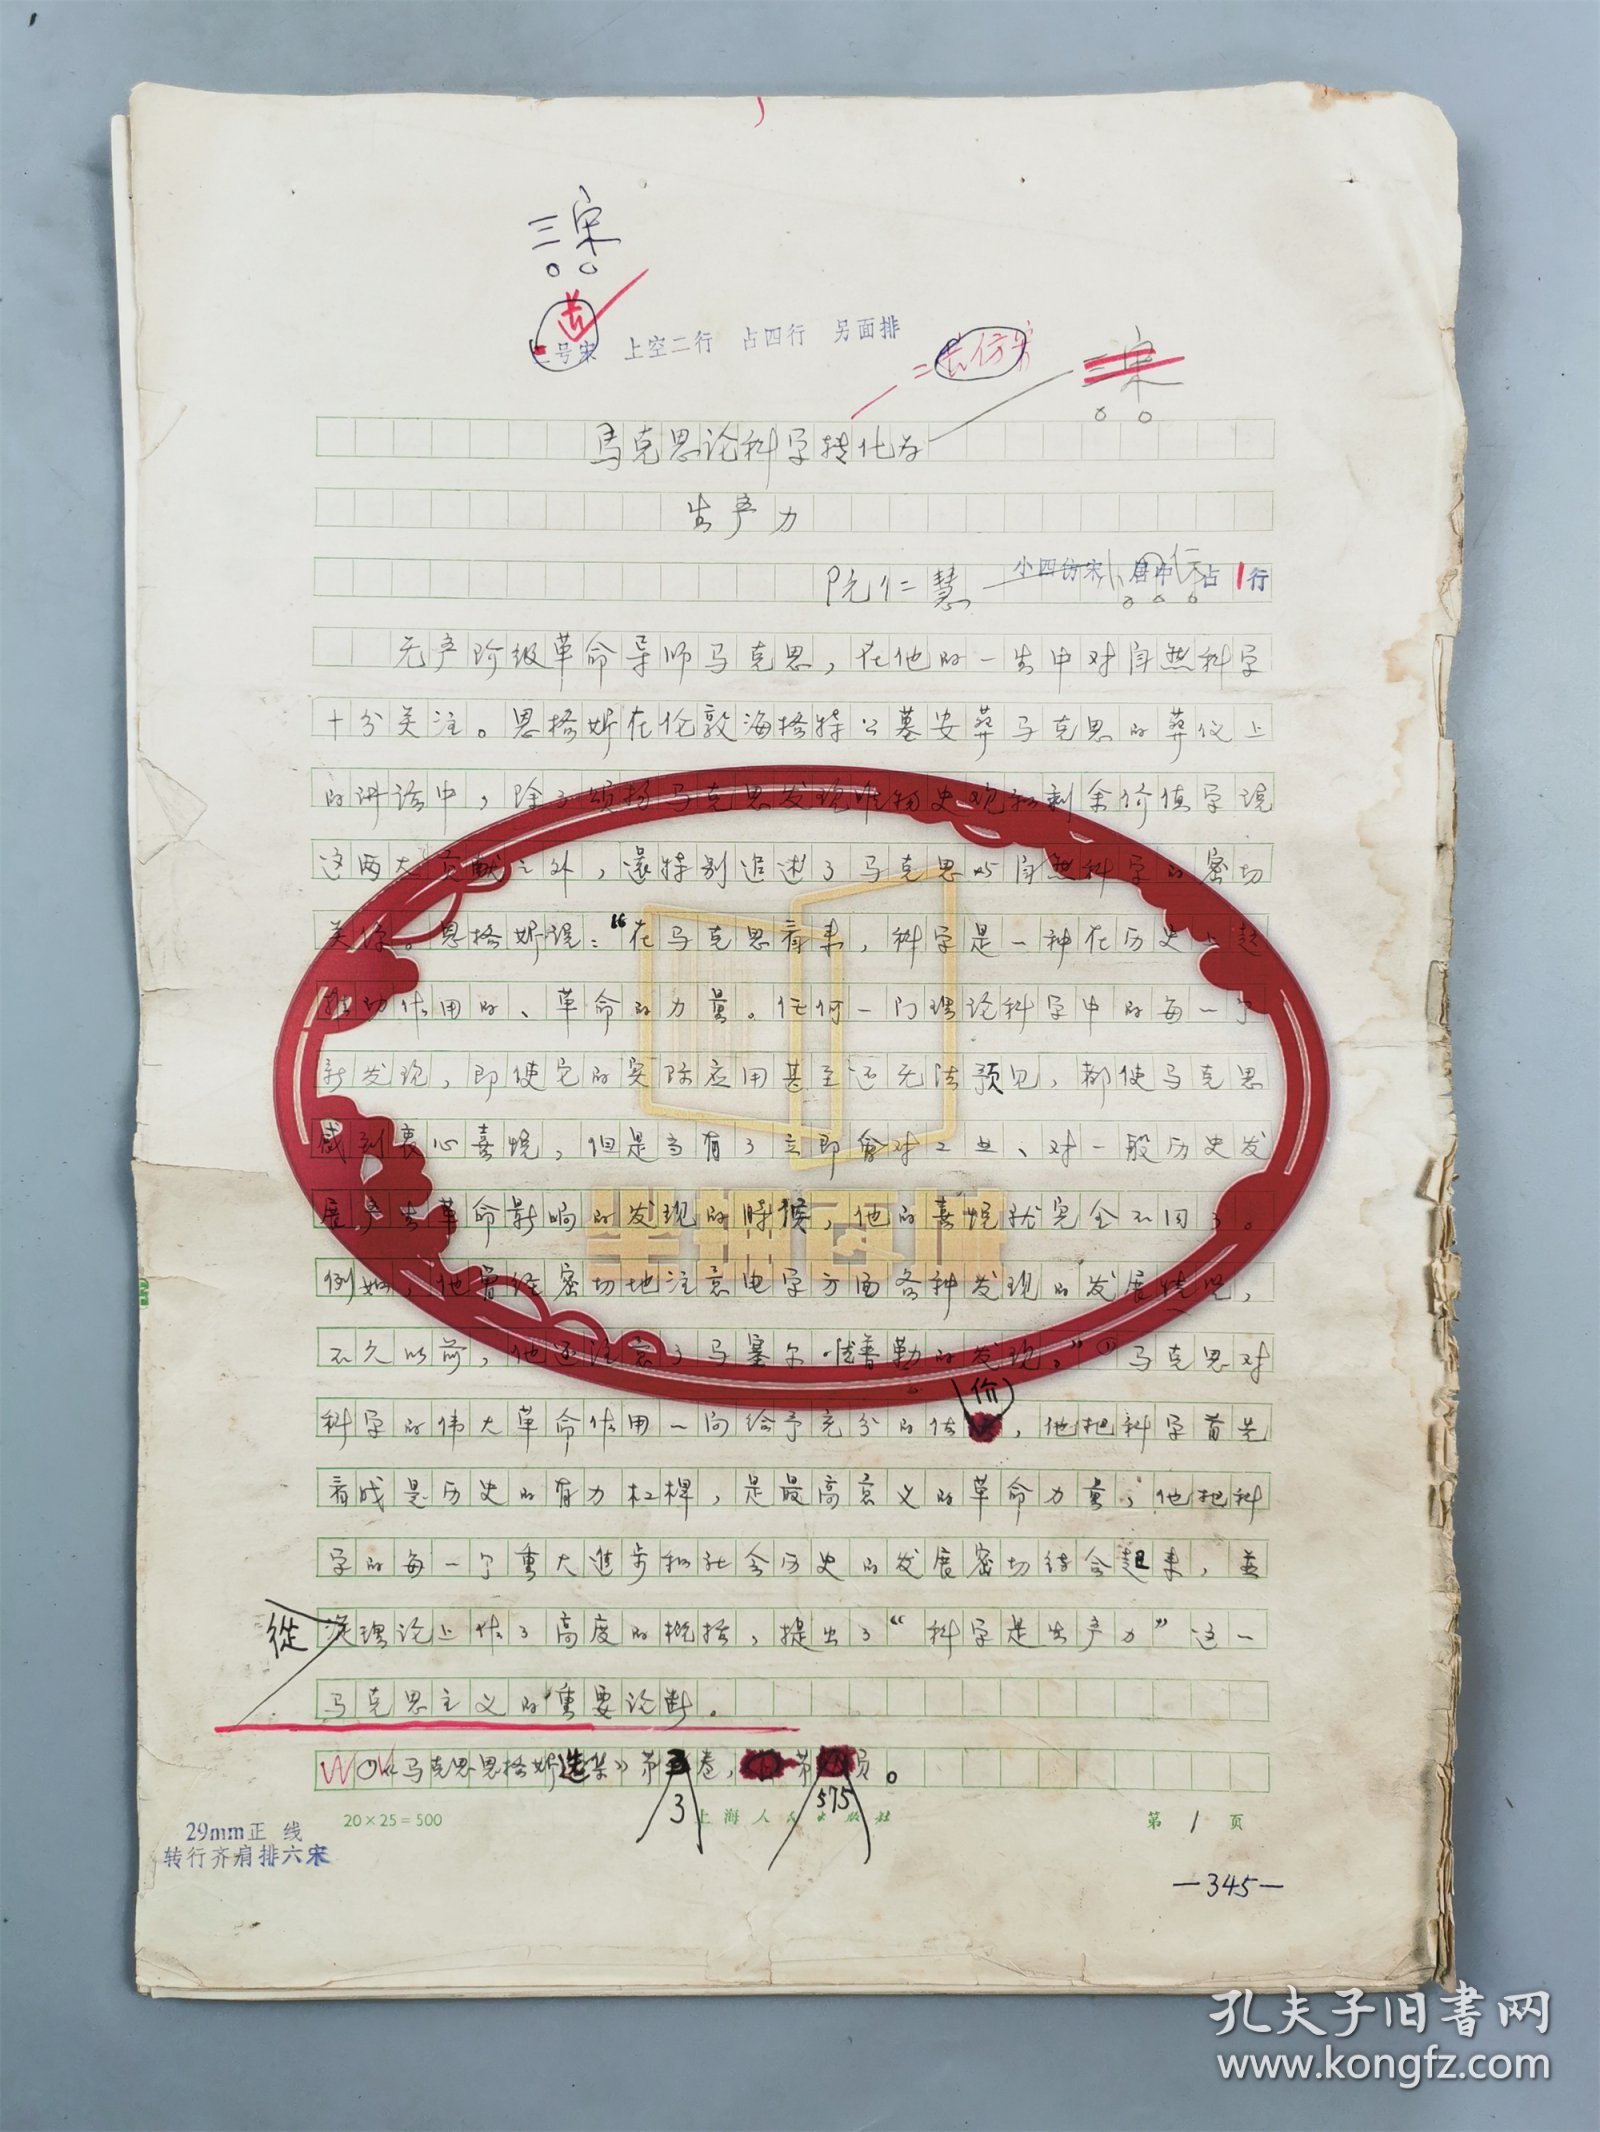 三宋
二号宋 上空二行 占四行 另面排
长仿宋
三宋
马克思论科学转化为
生产力
阮仁慧
小四仿宋 占1行
无产阶级革命导师马克思，在他的一生中对自然科学
十分关注。恩格斯在伦敦海格特公墓安葬马克思的葬仪上
的讲话中，除了颂扬马克思发现唯物史观和剩余价值学说
这两大贡献之外，还特别追述了马克思与自然科学的密切
关系。恩格斯说：“在马克思看来，科学是一种在历史上起
推动作用的、革命的力量。任何一门理论科学中的每一个
新发现，即使它的实际应用甚至还无法预见，都使马克思
感到衷心喜悦，但是当有了立即会对工业、对一般历史发
展产生革命影响的发现的时候，他的喜悦就完全不同了。
例如，他曾经密切地注意电学方面各种发现的发展情况，
不久以前，他还注意了马塞尔·德普勒的发现。”①马克思对
科学的伟大革命作用一向给予充分的估价，他把科学首先
看成是历史的有力杠杆，是最高意义的革命力量；他把科
学的每一个重大进步和社会历史的发展密切结合起来，并
從理论上作了高度的概括，提出了“科学是生产力”这一
马克思主义的重要论断。
①《马克思恩格斯选集》第3卷，第575页。
20×25=500 上海人民出版社 第1页
29mm正线
转行齐肩排六宋
—345—
孔夫子旧書网
www.kongfz.com